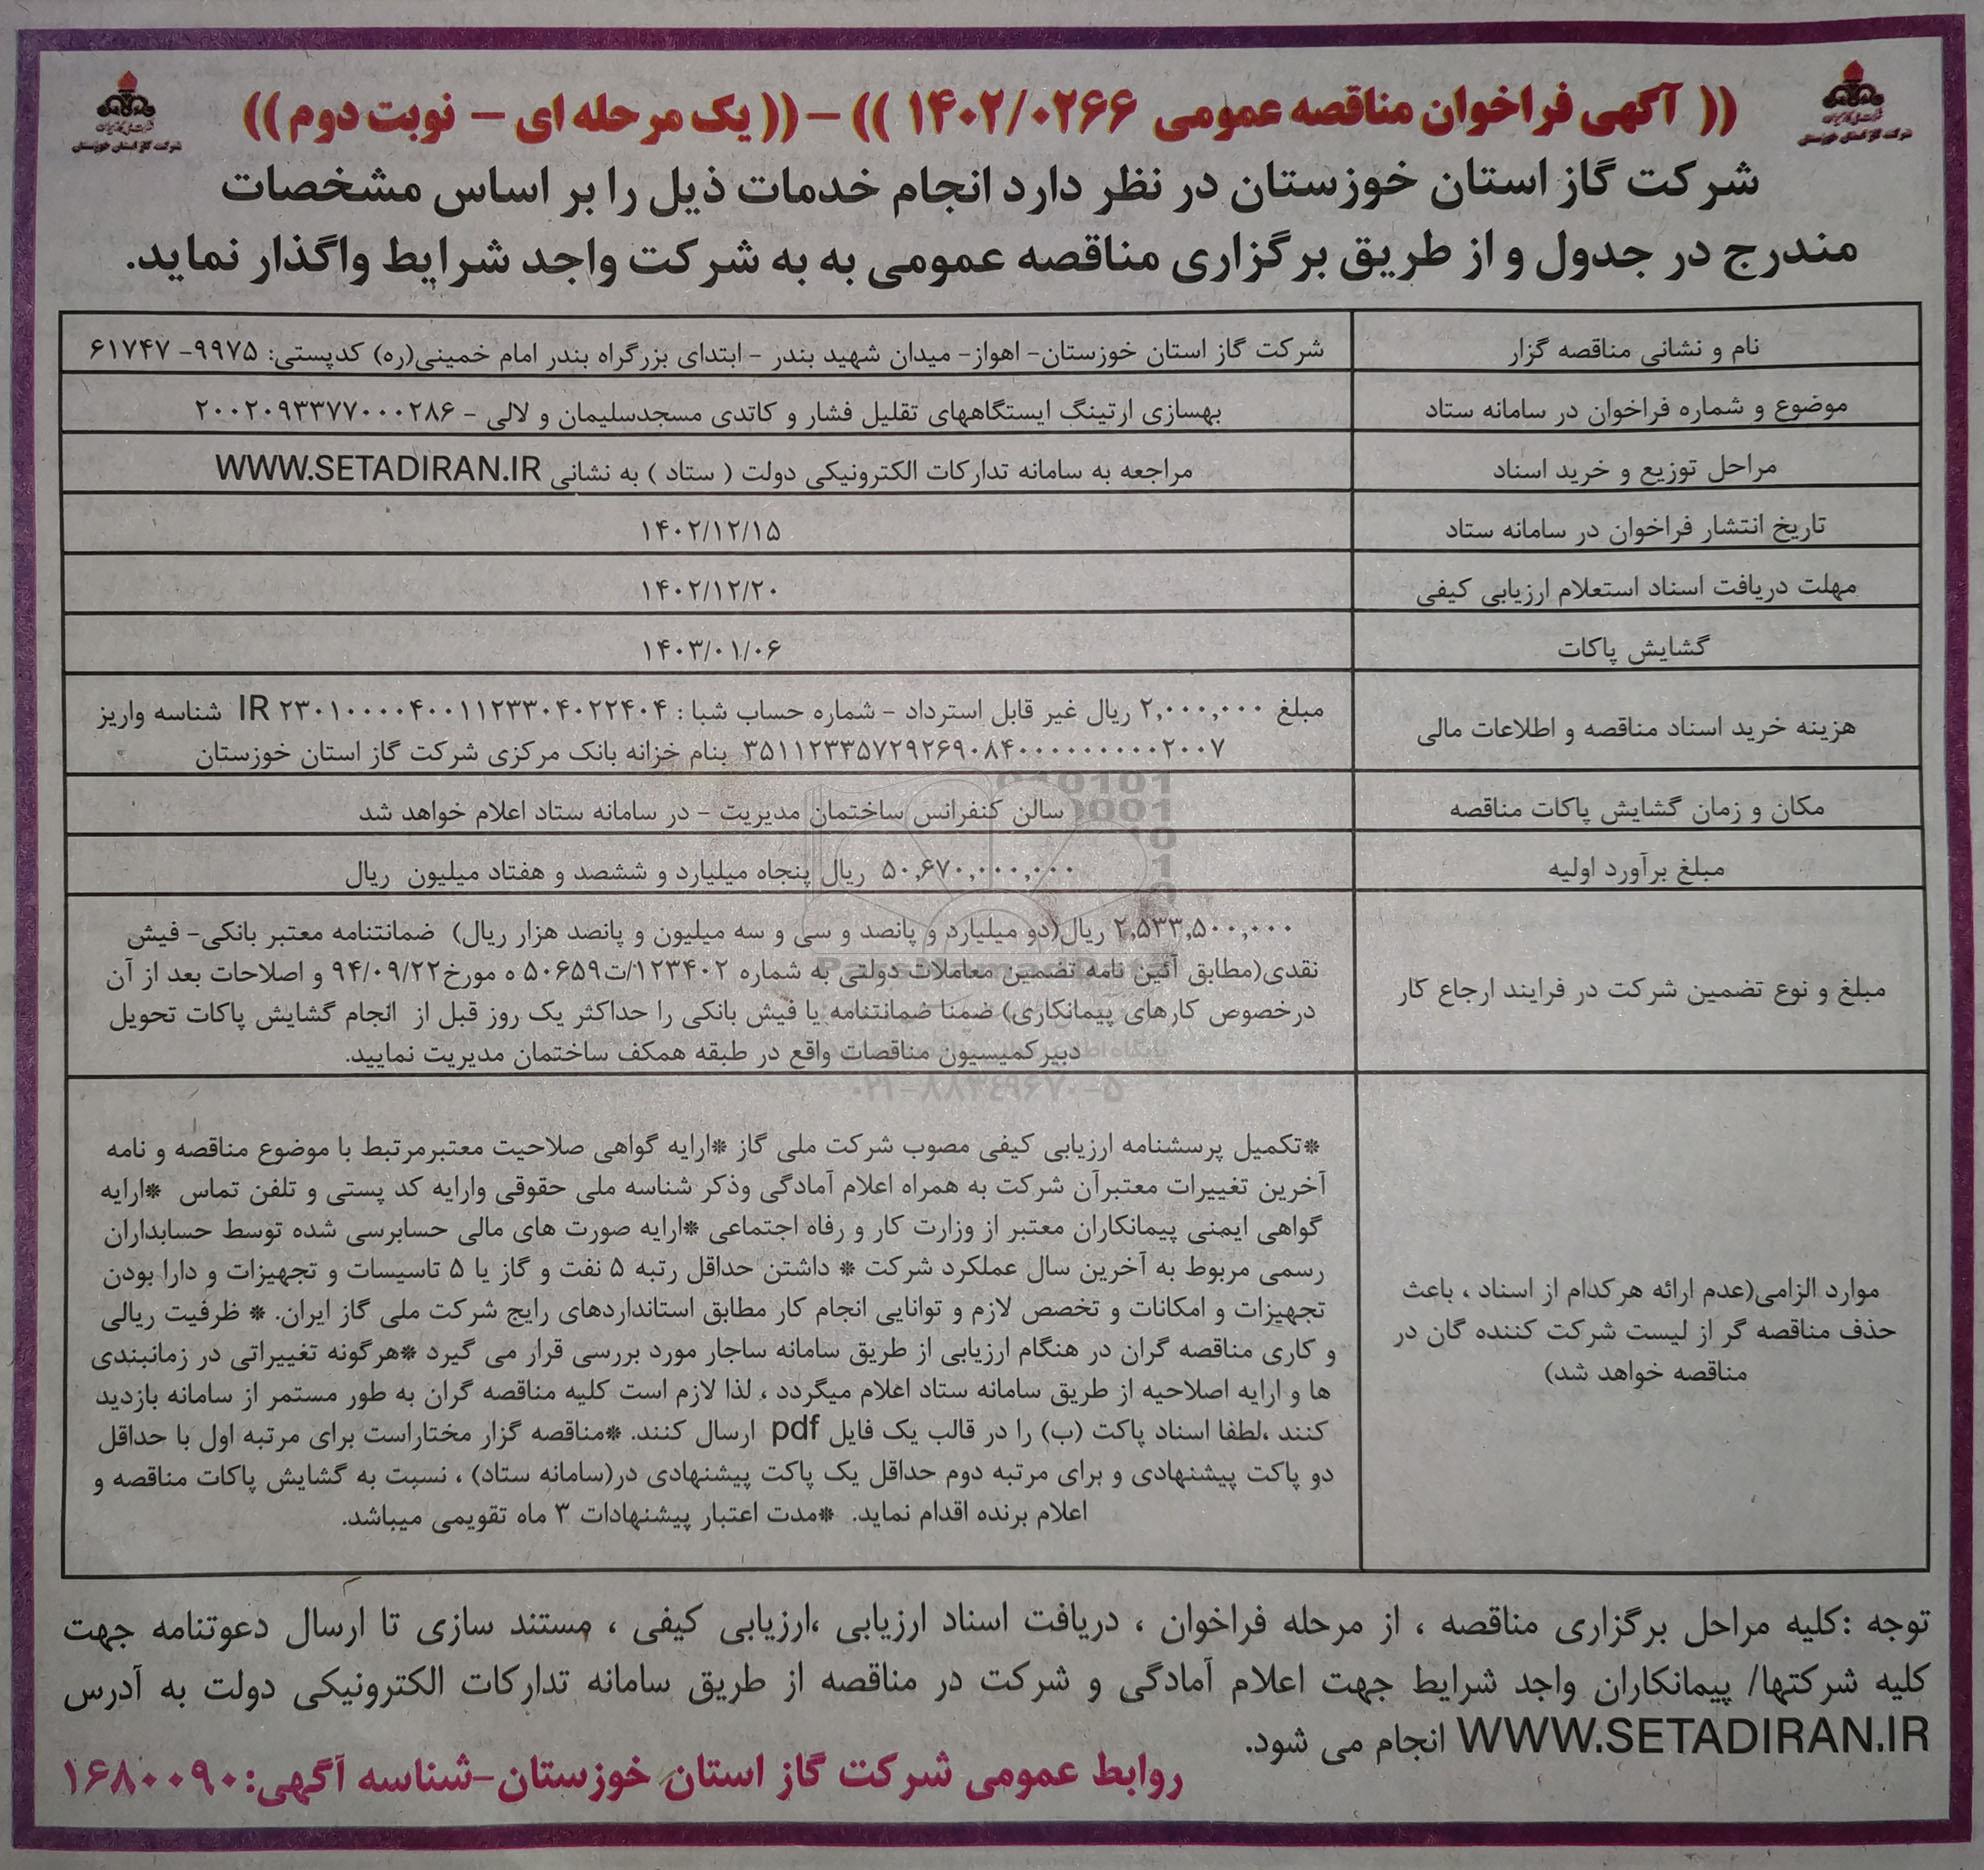 (( آگهی فراخوان مناقصه عمومی ۱۴۰۲/۰۲۶۶ )) – (( یک مرحله ای – نوبت دوم ))
شرکت گاز استان خوزستان
شرکت گاز استان خوزستان
شرکت گاز استان خوزستان در نظر دارد انجام خدمات ذیل را بر اساس مشخصات
مندرج در جدول و از طریق برگزاری مناقصه عمومی به به شرکت واجد شرایط واگذار نماید.
نام و نشانی مناقصه گزار
شرکت گاز استان خوزستان- اهواز- میدان شهید بندر - ابتدای بزرگراه بندر امام خمینی(ره) کدپستی: ۹۹۷۵- ۶۱۷۴۷
موضوع و شماره فراخوان در سامانه ستاد
بهسازی ارتینگ ایستگاههای تقلیل فشار و کاتدی مسجدسلیمان و لالی - ۲۰۰۲۰۹۳۳۷۷۰۰۰۲۸۶
مراحل توزیع و خرید اسناد
مراجعه به سامانه تدارکات الکترونیکی دولت ( ستاد ) به نشانی WWW.SETADIRAN.IR
تاریخ انتشار فراخوان در سامانه ستاد
۱۴۰۲/۱۲/۱۵
مهلت دریافت اسناد استعلام ارزیابی کیفی
۱۴۰۲/۱۲/۲۰
گشایش پاکات
۱۴۰۳/۰۱/۰۶
هزینه خرید اسناد مناقصه و اطلاعات مالی
مبلغ ۲,۰۰۰,۰۰۰ ریال غیر قابل استرداد - شماره حساب شبا : IR ۲۳۰۱۰۰۰۰۴۰۰۱۱۲۳۳۰۴۰۲۲۴۰۴ شناسه واریز
۳۵۱۱۲۳۳۵۷۲۹۲۶۹۰۸۴۰۰۰۰۰۰۰۰۰۰۲۰۰۷ بنام خزانه بانک مرکزی شرکت گاز استان خوزستان
مکان و زمان گشایش پاکات مناقصه
سالن کنفرانس ساختمان مدیریت - در سامانه ستاد اعلام خواهد شد
مبلغ برآورد اولیه
۵۰,۶۷۰,۰۰۰,۰۰۰ ریال پنجاه میلیارد و ششصد و هفتاد میلیون ریال
مبلغ و نوع تضمین شرکت در فرایند ارجاع کار
۲,۵۳۳,۵۰۰,۰۰۰ ریال(دو میلیارد و پانصد و سی و سه میلیون و پانصد هزار ریال) ضمانتنامه معتبر بانکی- فیش
نقدی(مطابق آئین نامه تضمین معاملات دولتی به شماره ۱۲۳۴۰۲/ت۵۰۶۵۹ ه مورخ۹۴/۰۹/۲۲ و اصلاحات بعد از آن
درخصوص کارهای پیمانکاری) ضمنا ضمانتنامه یا فیش بانکی را حداکثر یک روز قبل از انجام گشایش پاکات تحویل
دبیرکمیسیون مناقصات واقع در طبقه همکف ساختمان مدیریت نمایید.
۰۲۱-۸۸۳۴۹۶۷۰-۵
موارد الزامی(عدم ارائه هرکدام از اسناد ، باعث
حذف مناقصه گر از لیست شرکت کننده گان در
مناقصه خواهد شد)
*تکمیل پرسشنامه ارزیابی کیفی مصوب شرکت ملی گاز *ارایه گواهی صلاحیت معتبرمرتبط با موضوع مناقصه و نامه
آخرین تغییرات معتبرآن شرکت به همراه اعلام آمادگی وذکر شناسه ملی حقوقی وارایه کد پستی و تلفن تماس *ارایه
گواهی ایمنی پیمانکاران معتبر از وزارت کار و رفاه اجتماعی *ارایه صورت های مالی حسابرسی شده توسط حسابداران
رسمی مربوط به آخرین سال عملکرد شرکت * داشتن حداقل رتبه ۵ نفت و گاز یا ۵ تاسیسات و تجهیزات و دارا بودن
تجهیزات و امکانات و تخصص لازم و توانایی انجام کار مطابق استانداردهای رایج شرکت ملی گاز ایران. * ظرفیت ریالی
و کاری مناقصه گران در هنگام ارزیابی از طریق سامانه ساجار مورد بررسی قرار می گیرد *هرگونه تغییراتی در زمانبندی
ها و ارایه اصلاحیه از طریق سامانه ستاد اعلام میگردد ، لذا لازم است کلیه مناقصه گران به طور مستمر از سامانه بازدید
کنند ،لطفا اسناد پاکت (ب) را در قالب یک فایل pdf ارسال کنند. *مناقصه گزار مختاراست برای مرتبه اول با حداقل
دو پاکت پیشنهادی و برای مرتبه دوم حداقل یک پاکت پیشنهادی در(سامانه ستاد) ، نسبت به گشایش پاکات مناقصه و
اعلام برنده اقدام نماید. *مدت اعتبار پیشنهادات ۳ ماه تقویمی میباشد.
توجه :کلیه مراحل برگزاری مناقصه ، از مرحله فراخوان ، دریافت اسناد ارزیابی ،ارزیابی کیفی ، مستند سازی تا ارسال دعوتنامه جهت
کلیه شرکتها/ پیمانکاران واجد شرایط جهت اعلام آمادگی و شرکت در مناقصه از طریق سامانه تدارکات الکترونیکی دولت به آدرس
WWW.SETADIRAN.IR انجام می شود.
روابط عمومی شرکت گاز استان خوزستان-شناسه آگهی:۱۶۸۰۰۹۰